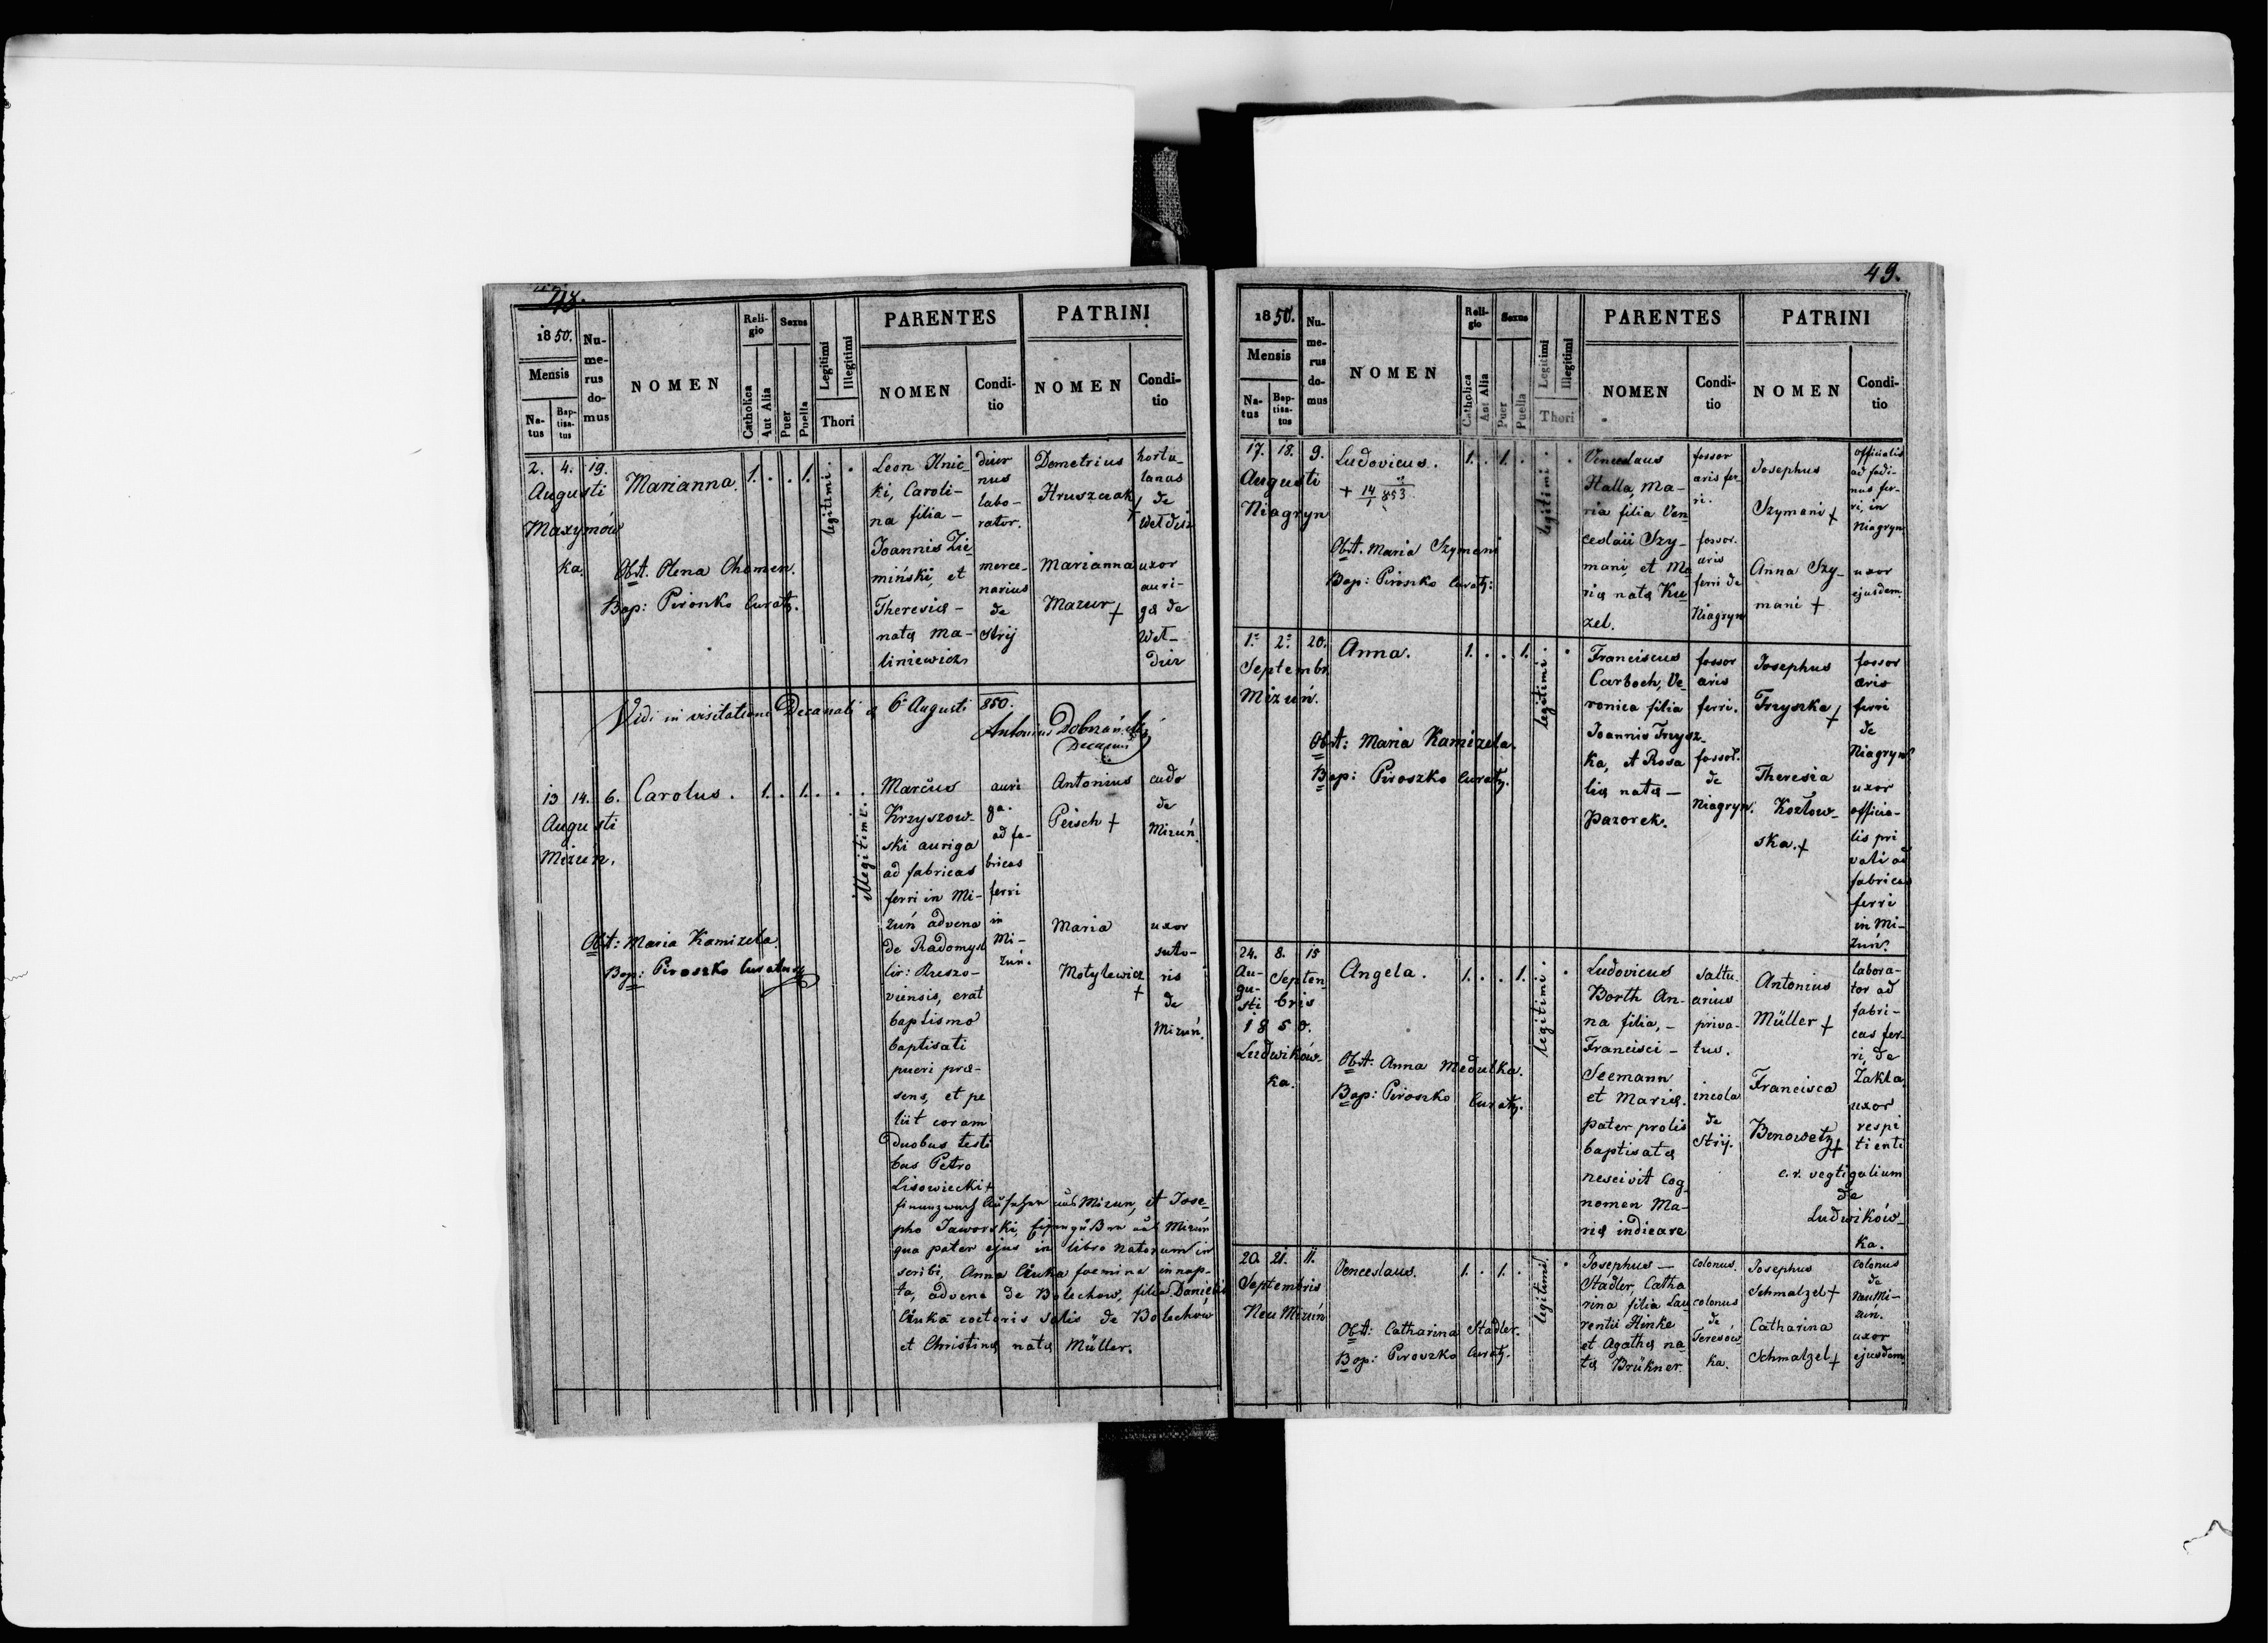 48.
1850.
Mensis
Na-
tus
Bap-
tisa-
tus
Nu-
me-
rus
do-
mus
NOMEN
Reli-
gio
Catholica
Aut Alia
Sexus
Puer
Puella
Legitimi
Illegitimi
Thori
PARENTES
NOMEN
Condi-
tio
PATRINI
NOMEN
Condi-
tio
2. 4. 19.
Augusti
Maxymów
ka.
Marianna.
1. . . 1.
legitimi.
Obst. Olena Chomen.
Bap: Piroszko Curatg.
Leon Knic
ki, Caroli-
na filia -
Joannis Zie-
miński, et
Theresia -
nata Ma-
liniewicz
diur
nus
labo-
rator.
merce-
narius
de
Strij
Demetrius
Hruszczak
+
Marianna
Mazur +
hortu-
lanus
de
Weldzirz
uxor
auri-
ga de
Wel-
dzir
Vidi in visitatione Decanali d 6 Augusti 850.
Antonius Dobrzański
Decanus
13 14. 6.
Augusti
Mizuń.
Carolus.
1. . 1. . .
illegitimi.
Obst: Maria Kamizela.
Bap: Piroszko Curatus
Marcus
Krzyszow-
ski auriga
ad fabricas
ferri in Mi-
zuń advena
de Radomysl
cir: Rzeszo-
viensis, erat
baptismo
baptisati
pueri præ-
sens, et pe
tiit coram
duobus testi
bus Petro
Lisowiecki +
aus Mizun, et Jose-
pho Jaworski, aus Mizuń
qua pater ejus in libro natorum in
scribi, Anna Cźuka foemina innup-
ta, advena de Bolechow, filia Danielis
Cźuka coctoris Salis de Bolechów
et Christina nata Müller.
auri
ga.
ad fa-
bricas
ferri
in
Mi-
zuń.
Antonius
Peisch +
Maria
Motylewicz
+
cudo
de
Mizuń.
uxor
suto-
ris
de
Mizuń.
49.
1850.
Mensis
Na-
tus
Bap-
tisa-
tus
Nu-
me-
rus
do-
mus
NOMEN
Reli-
gio
Catholica
Aut Alia
Sexus
Puer
Puella
Legitimi
Illegitimi
Thori
PARENTES
NOMEN
Condi-
tio
PATRINI
NOMEN
Condi-
tio
17. 18. 9.
Augusti
Niagryn
Ludovicus.
+ 14/1 853
1. . 1. .
legitimi.
Obst. Maria Szymani
Bap: Piroszko Curatg:
Venceslaus
Halla, Ma-
ria filia Ven
ceslaii Szy-
mani, et Ma
ria nata Ku-
zel.
fossor
æris fer-
ri.
fossor.
æris
ferri de
Niagryn
Josephus
Szymani +
Anna Szy-
mani +
officialis
ad fodi-
nus fer-
ri, in
Niagryn
uxor
ejusdem.
1. 2. 20.
Septembr.
Mizuń.
Anna.
1. . . 1.
legitimi.
Obst: Maria Kamizela.
Bap: Piroszko Curatg.
Franciscus
Carboch, Ve-
ronica filia
Joannis Trzysz-
ka, et Rosa
lia nata -
Pazorek.
fossor
æris
ferri.
fossor.
de
Niagryn.
Josephus
Trzyszka +
Theresia
Kozłow-
ska. +
fossor
æris
ferri
de
Niagryn
uxor
officia-
lis pri
vati ad
fabricas
ferri
in Mi-
zuń.
24. 8. 15
Au-
gu-
sti
Septem
bris
1850.
Ludwików-
ka.
Angela.
1. . . 1.
legitimi.
Obst. Anna Medulka.
Bap: Piroszko Curatg.
Ludovicus
Borth An-
na filia, -
Francisci -
Seemann
et Maria.
pater prolis
baptisata
nescivit Cog
nomen Ma-
ria indicare
saltu
arius
priva-
tus.
incola
de
Strij.
Antonius
Müller +
Francisca
Benowetz +
labora-
tor ad
fabri-
cas fer-
ri, de
Zakla
uxor
respi
tienti
c. r. vegtigalium
de
Ludwików-
ka.
20. 21. 11.
Septembris
Neu Mizuń
Venceslaus.
1. . 1. .
legitimi.
Obst: Catharina Stadler.
Bap: Piroszko Curatg.
Josephus -
Stadler, Catha
rina filia Lau
rentii Hinke
et Agatha na
ta Brükner.
Colonus.
colonus
de
Teresów
ka.
Josephus
Schmalzel +
Catharina
Schmalzel +
Colonus
de
Neu Mi-
zuń.
uxor
ejusdem.